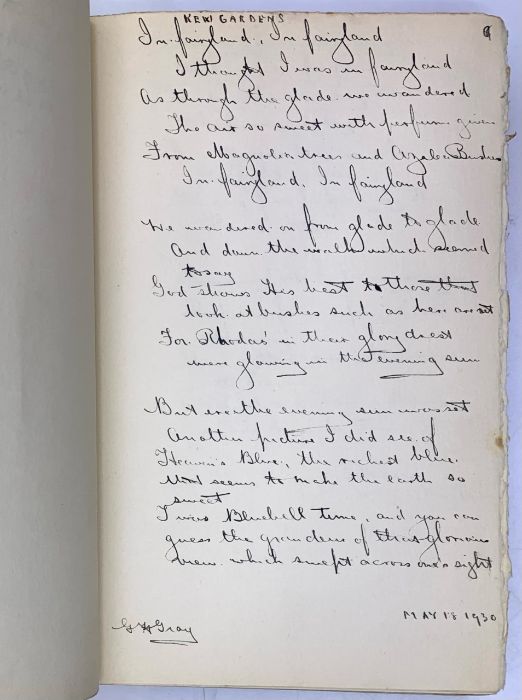 KEW GARDENS
6
In fairyland, In fairyland
I thought I was in fairyland
As through the glade we wandered
The air so sweet with perfume given
From Magnolia trees and Azalea Bushes
In fairyland, In fairyland
We wandered on from glade to glade
And down the walk which seemed
to say
God shows His best to those that
look at bushes such as here are set
For Rhodas' in their glory drest
were glowing in the evening sun
But ere the evening sun was set
Another picture I did see of
Heaven's Blue, the richest blue.
that seems to make the earth so
sweet
I was Bluebell Time, and you can
guess the grandeur of that glorious
view which swept across one's sight
MAY 18 1930
G H Gray